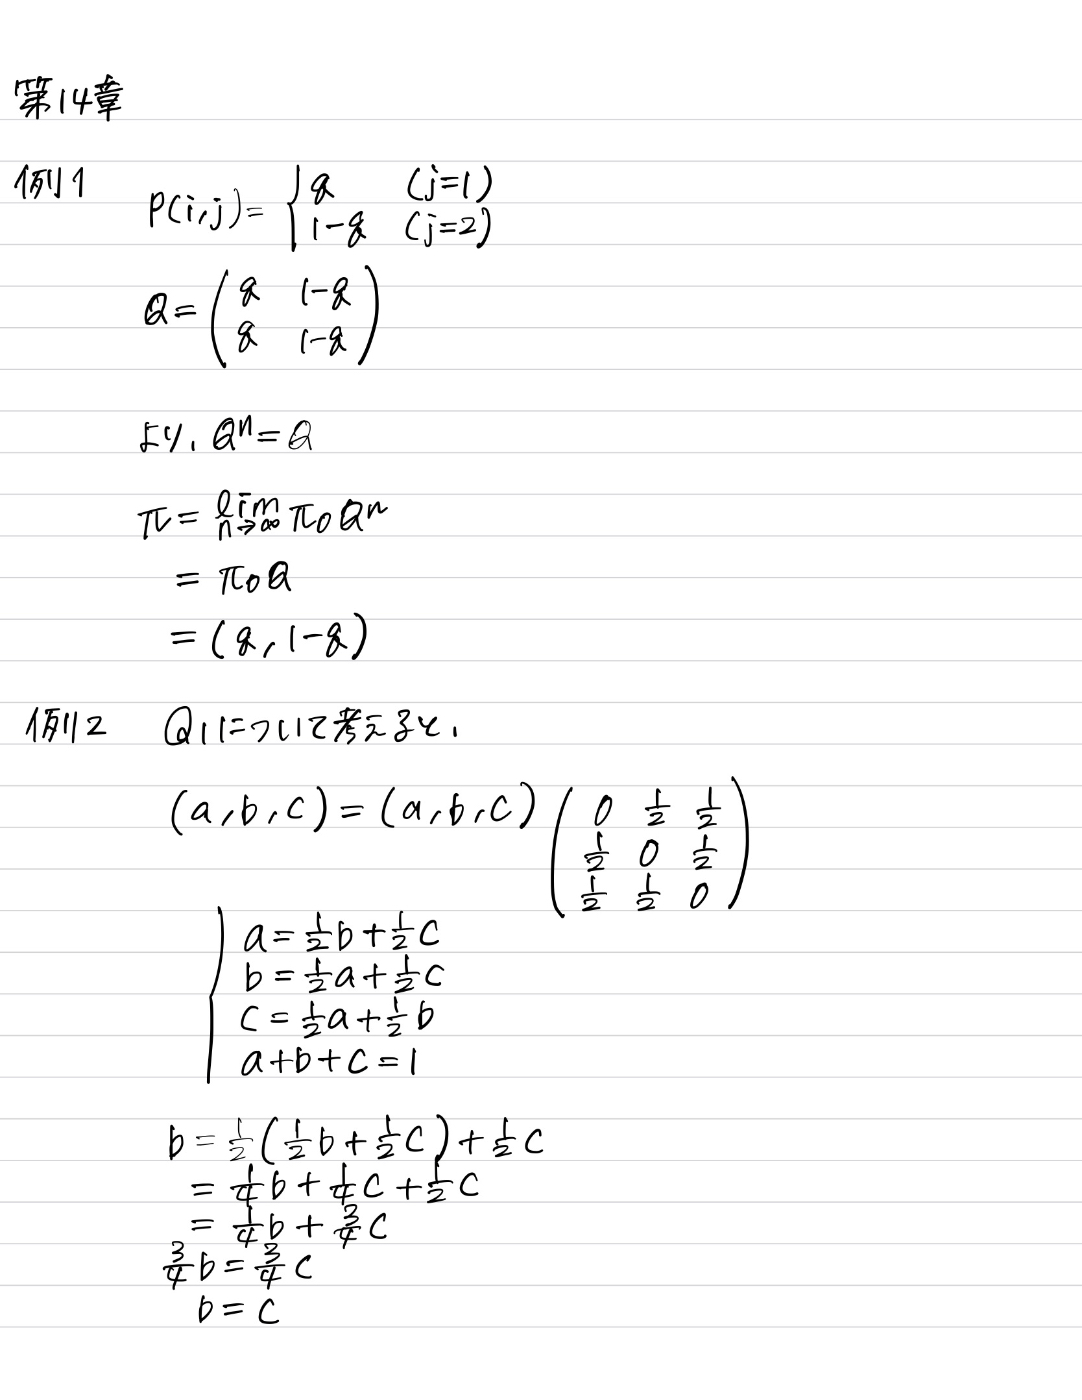 第14章
例1
P(i,j)= { q (j=1)
1-q (j=2)
Q= ( q 1-q
q 1-q )
より、Qⁿ=Q
π= lim n→∞ π₀Qⁿ
= π₀Q
= (q, 1-q)
例2 Q₁について考えると、
(a,b,c)=(a,b,c) ( 0 1/2 1/2
1/2 0 1/2
1/2 1/2 0 )
{ a=1/2b+1/2c
b=1/2a+1/2c
c=1/2a+1/2b
a+b+c=1
b=1/2(1/2b+1/2c)+1/2c
=1/4b+1/4c+1/2c
=1/4b+3/4c
3/4b=3/4c
b=c